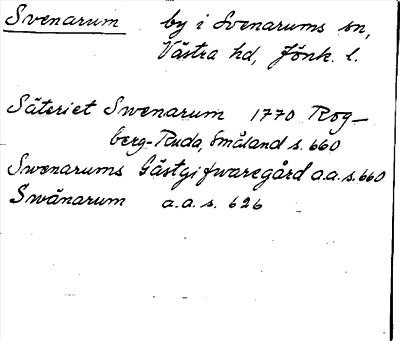 Svenarum by i Svenarums sn,
Västra hd, Jönk. l.
Säteriet Swenarum 1770 Rog-
berg-Ruda, Småland s. 660
Swenarums Gästgifwaregård a.a. s. 660
Swänarum a.a. s. 626